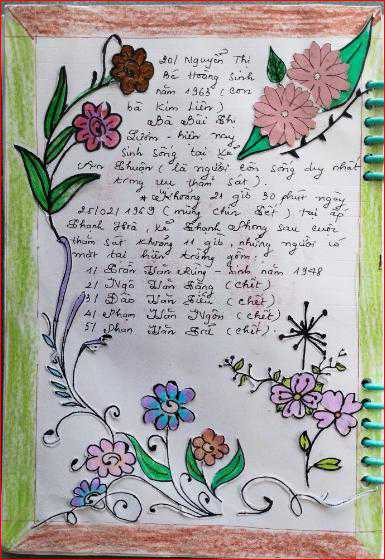 20/ Nguyễn Thị
Bé Hoàng Sinh
năm 1963 (con
bà Kim Liên)
Bà Bùi Thị
Lượm - hiện nay
sinh sống tại xã
Thuận (là người còn sống duy nhất
trong vụ thảm sát).
* Khoảng 21 giờ 30 phút ngày
25/02/1969 (mùng chín Tết) tại ấp
Thạnh Hòa, xã Thạnh Phong sau cuộc
thảm sát khoảng 11 giờ, những người có
mặt tại hiện trường gồm:
1/ Trần Văn Rùng - sinh năm 1948
2/ Ngô Văn (chết)
3/ Đào Văn (chết)
4/ Phạm Văn Ngôn (chết)
5/ Phan Văn (chết).